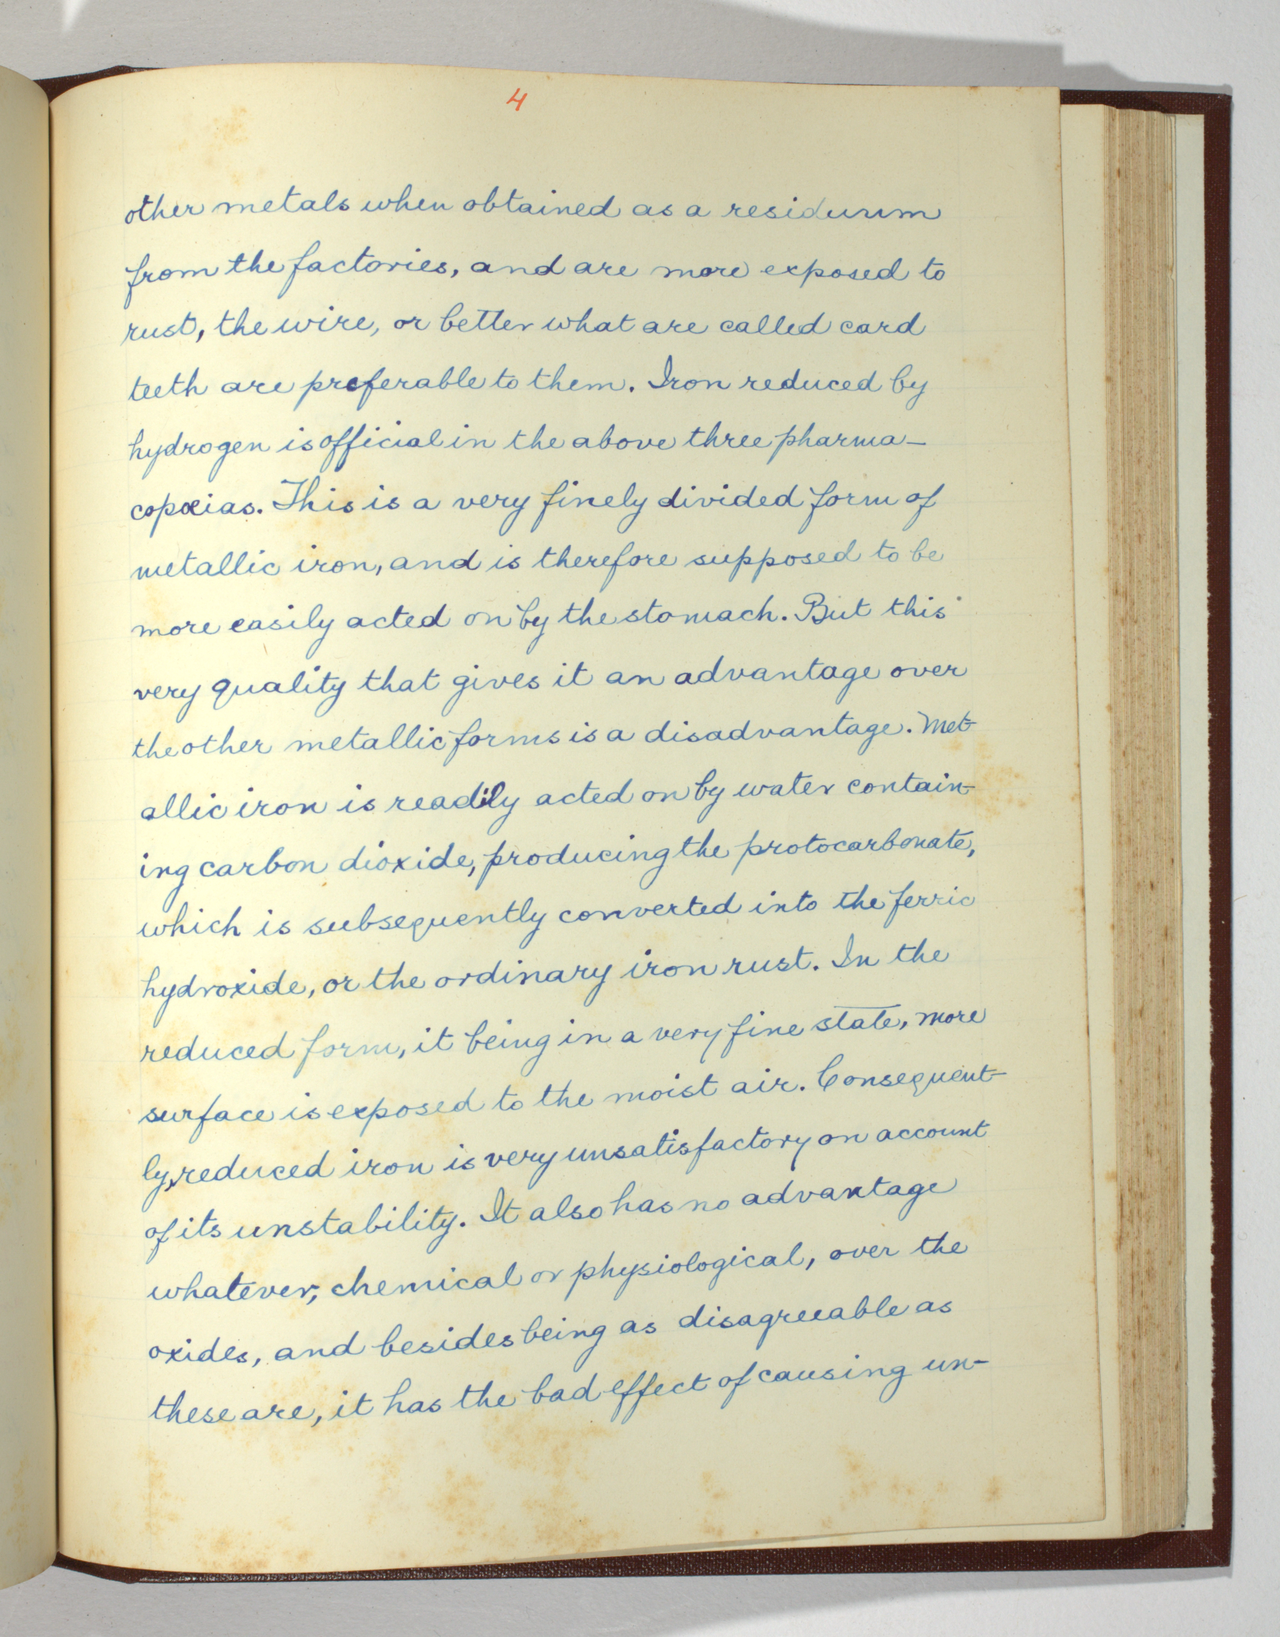 4
other metals when obtained as a residuum
from the factories, and are more exposed to
rust, the wire, or better what are called card
teeth are preferable to them. Iron reduced by
hydrogen is official in the above three pharma-
copœias. This is a very finely divided form of
metallic iron, and is therefore supposed to be
more easily acted on by the stomach. But this
very quality that gives it an advantage over
the other metallic forms is a disadvantage. Met-
allic iron is readily acted on by water contain-
ing carbon dioxide, producing the protocarbonate,
which is subsequently converted into the ferric
hydroxide, or the ordinary iron rust. In the
reduced form, it being in a very fine state, more
surface is exposed to the moist air. Consequent-
ly, reduced iron is very unsatisfactory on account
of its unstability. It also has no advantage
whatever, chemical or physiological, over the
oxides, and besides being as disagreeable as
these are, it has the bad effect of causing un-